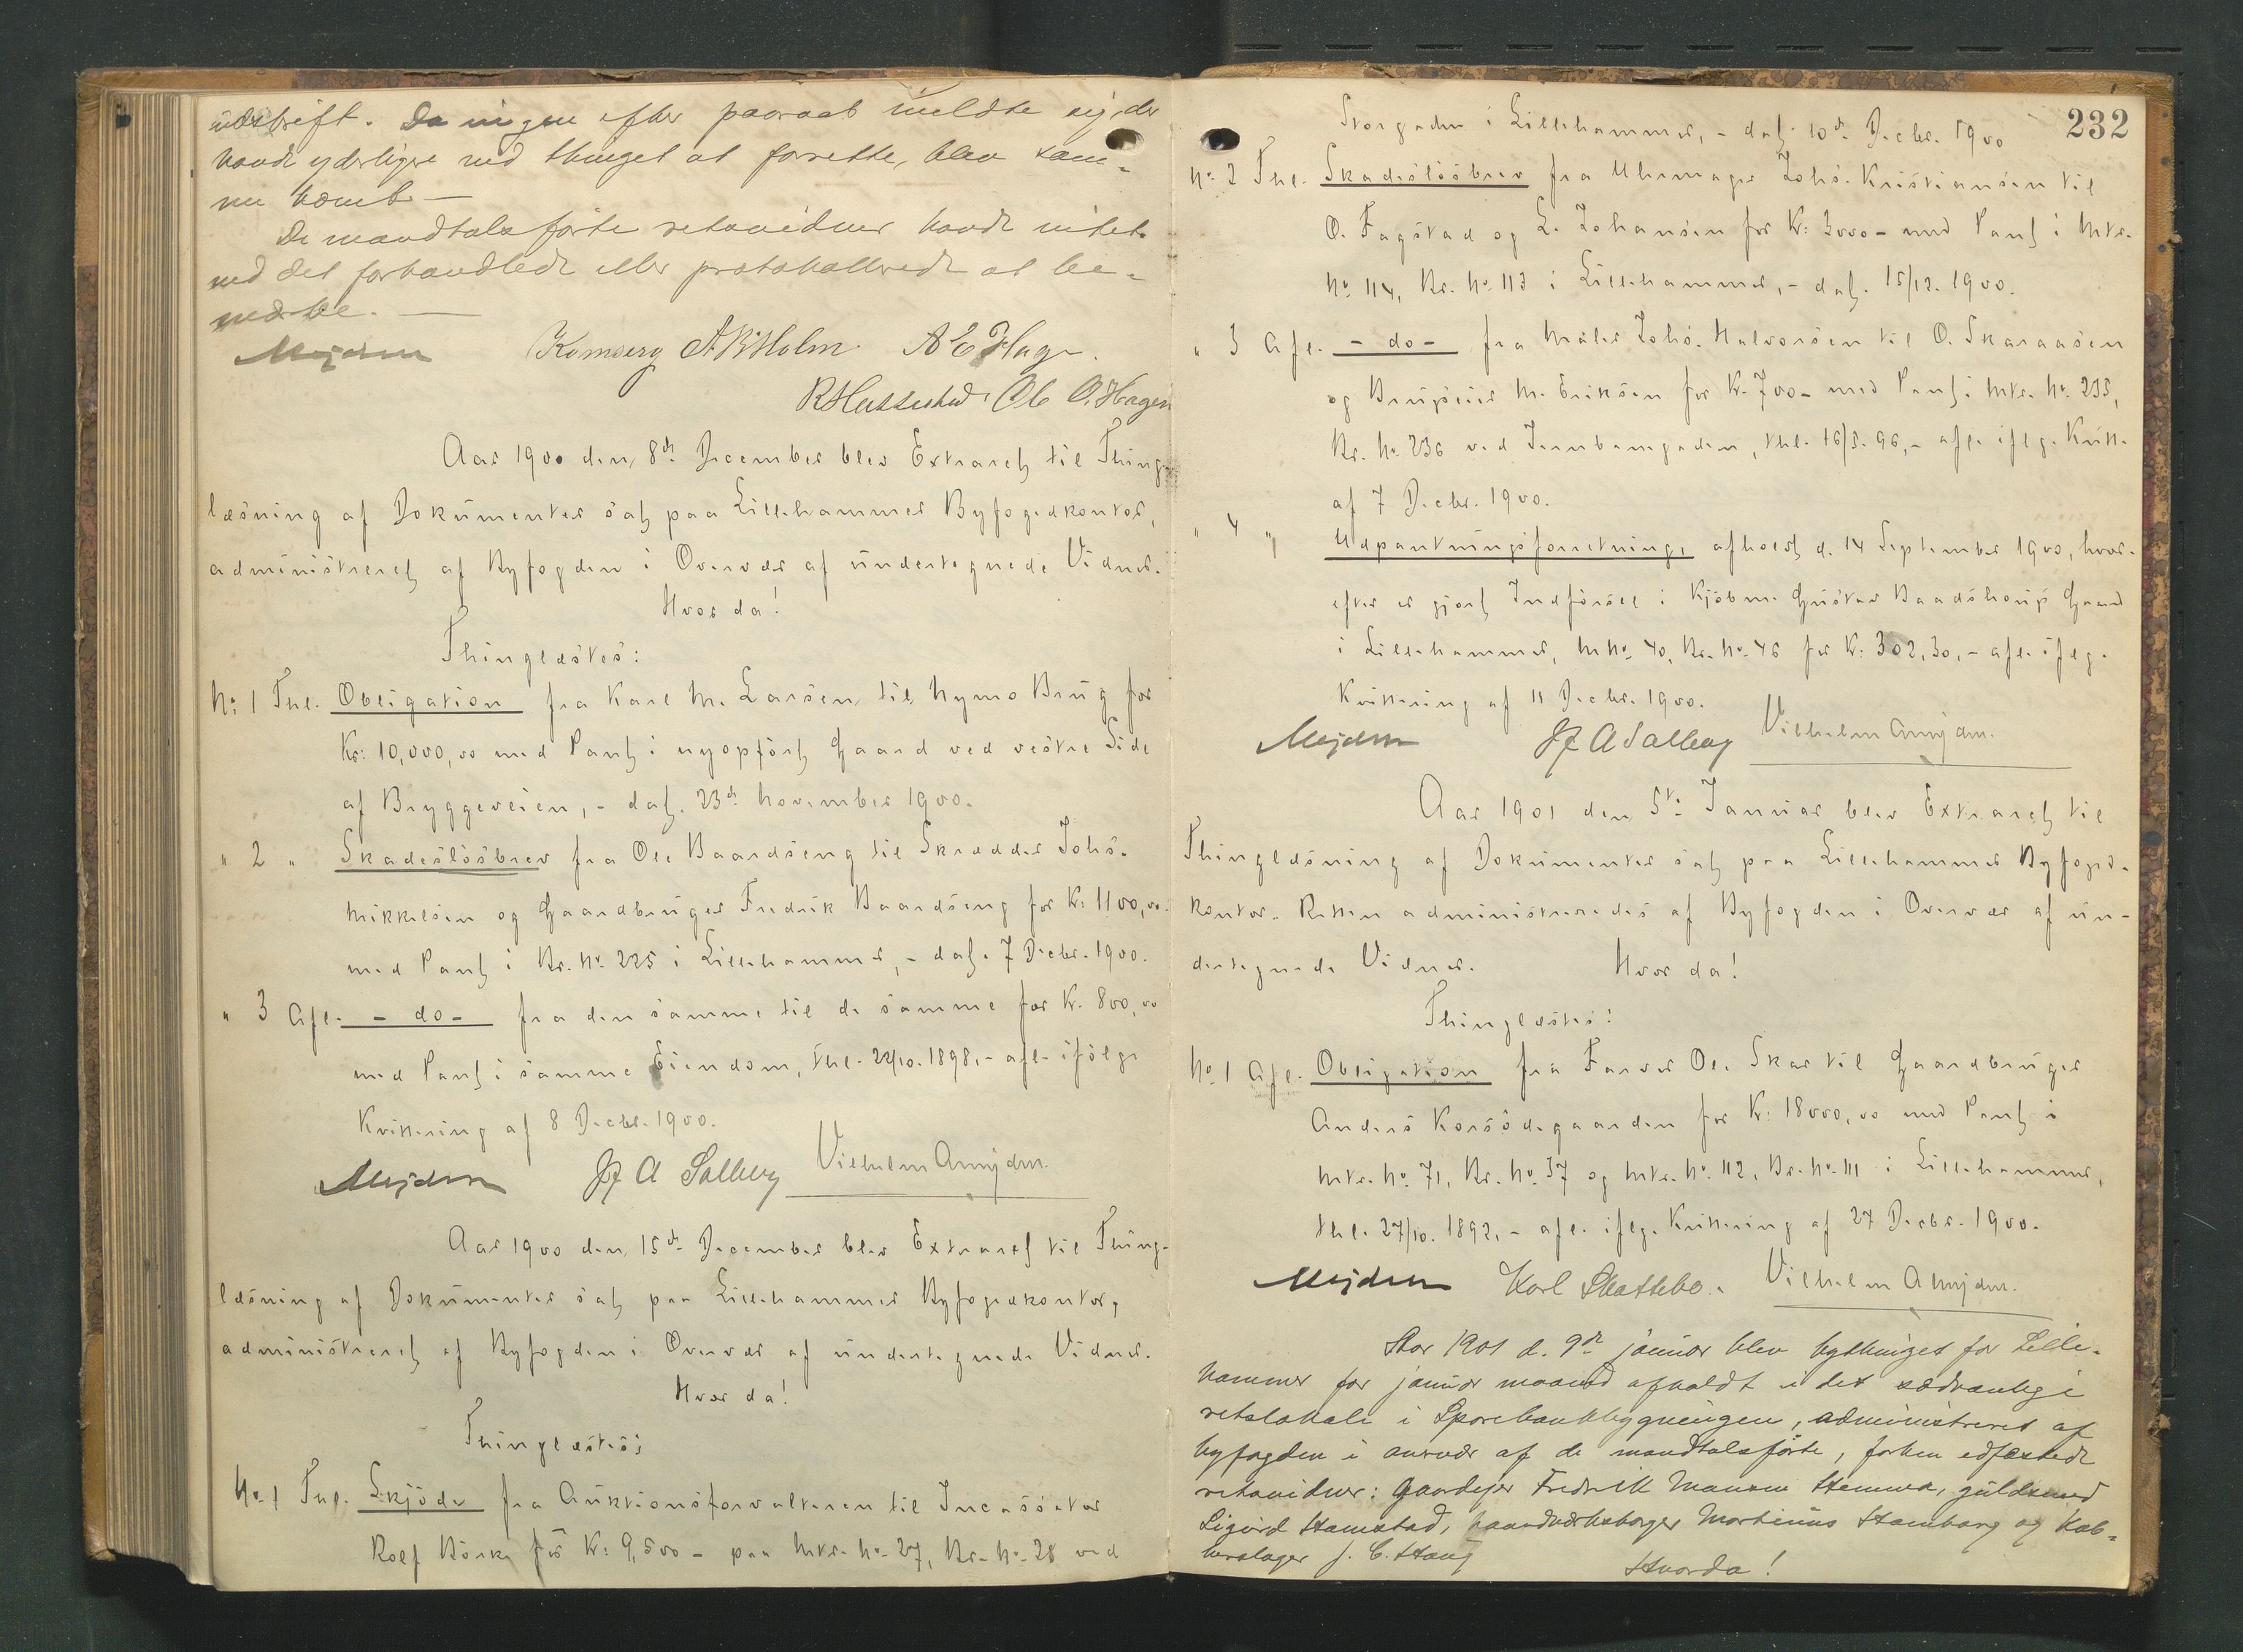 udskrift. Da ingen efter paaraab meldte sig, der
havde yderligere ved thinget at forrette, blev sam-
me hævet. —
De mandtalsførte retsvidner havde intet
ved det forhandlede eller protokollerede at be-
mærke. —
Mejdell Komserg A B Holm. A E Hage.
Ole O. Hagen
Aar 1900 den 8de December blev Extraret til Thing-
læsning af Dokumenter sat paa Lillehammer Byfogedkontor,
administreret af Byfogden i Overvær af undertegnede Vidner.
Hvor da!
Thinglæstes:
No. 1 Thl. Obligation fra Karl M. Larsen til Nymo Brug for
Kr: 10,000,00 med Pant i nyopført Gaard ved vestre Side
af Bryggeveien, - dat. 23de November 1900.
" 2 " Skadesløsbrev fra Ole Baardseng til Skrædder Johs.
Mikkelsen og Gaardbruger Fredrik Baardseng for Kr: 1100,00
med Pant i Br. No. 225 i Lillehammer, - dat. 7 Decbr. 1900.
" 3 Afl. - do - fra den samme til de samme for Kr. 800,00
med Pant i samme Eiendom, thl. 22/10. 1898, - afl. ifølge
Kvittering af 8 Decbr. 1900.
Mejdell A Solberg Vilhelm
Aar 1900 den 15de December blev Extraret til Thing-
læsning af Dokumenter sat paa Lillehammer Byfogedkontor,
administreret af Byfogden i Overvær af undertegnede Vidner.
Hvor da!
Thinglæstes:
No. 1 Thl. Skjøde fra Auktionsforvalteren til Incassator
Rolf Børke for Kr: 9,500 - paa Mtr. No. 27, Br. No. 28 ved
232
Storgaden i Lillehammer, - dat. 10de Decbr. 1900
No. 2 Thl. Skadesløsbrev fra Uhrmager Johs. Kristiansen til
O. Fagstad og L. Johansen for Kr: 3000 - med Pant i Mtr.
No. 114, Br. No. 113 i Lillehammer, - dat. 15/12. 1900.
" 3 Afl. - do - fra Maler Johs. Halvorsen til O. Skaraasen
og Brugseier M. Eriksen for Kr. 700 - med Pant i Mtr. No. 235,
Br. No. 236 ved Jernbanegaden, thl. 16/5. 96, - afl. iflg. Kvitt.
af 7 Decbr. 1900.
" 4 " Udpantningsforretning, afholdt d. 14 September 1900, hvor-
efter er gjort Indførsel i Kjøbm. Gustav Baadshaugs Gaard
i Lillehammer, M No. 40, Br. No. 46 for Kr: 302,30, - afl. iflg.
Kvittering af 11 Decbr. 1900.
Mejdell A Solberg Vilhelm
Aar 1901 den 5te Januar blev Extraret til
Thinglæsning af Dokumenter sat paa Lillehammer Byfoged-
kontor. Retten administreredes af Byfogden i Overvær af un-
dertegnede Vidner. Hvor da!
Thinglæstes:
No. 1 Afl. Obligation fra Farver Ole Skar til Gaardbruger
Anders Korsødegaarden for Kr: 18000,00 med Pant i
Mtr. No. 71, Br. No. 37 og Mtr. No. 112, Br. No. 111 i Lillehammer,
thl. 27/10. 1892, - afl. iflg. Kvittering af 27 Decbr. 1900.
Mejdell Karl Skattebo. Vilhelm
Aar 1901 d. 9de januar blev bythinget for Lille-
hammer for januar maaned afholdt i det sædvanlige
retslokale i Sparebankbygningen, administreret af
byfogden i overvær af de mandtalsførte, forhen edfæstede
retsvidner: Gaardejer Fredrik Hammer, guldsmed
Sigurd Hamstad, haandværksborger Martinius Hamborg og Kob-
berslager J. C. Haug
Hvorda!